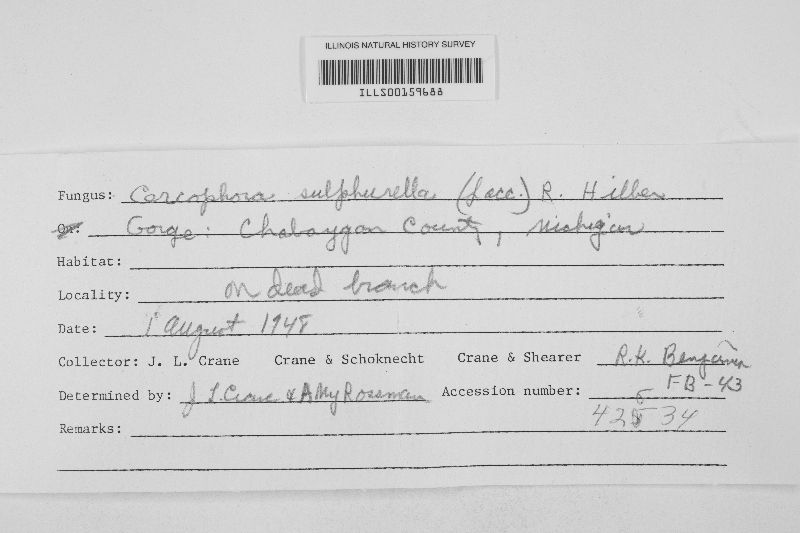 ILLINOIS NATURAL HISTORY SURVEY
ILLS00159688
Fungus: Cercophora sulphurella (Sacc.) R. Hilber
On: Gorge: Chaboygan County, Michigan
Habitat:
Locality: on dead branch
Date: 1 August 1948
Collector: J. L. Crane Crane & Schoknecht Crane & Shearer R.K. Benjamin
FB-43
Determined by: J L Crane & AMy Rossman Accession number:
34
Remarks: